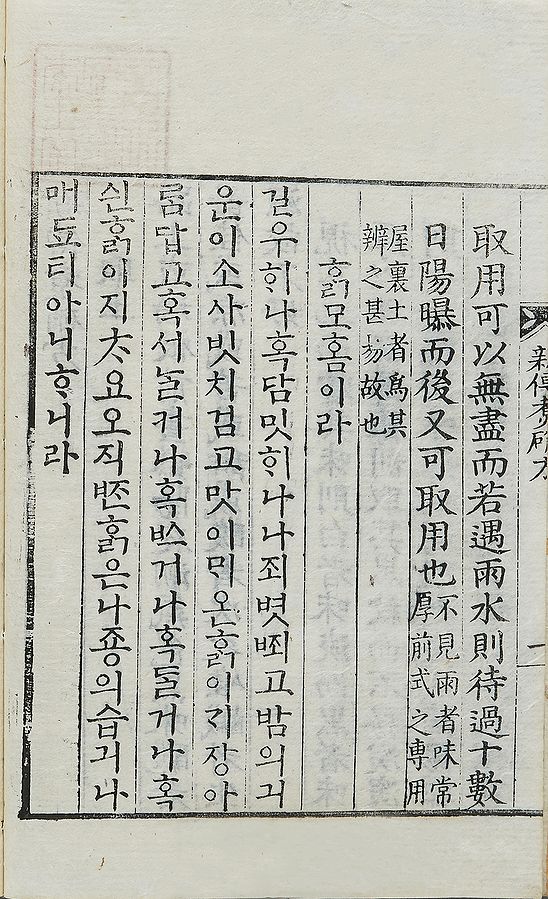 新傳煮硝方
取用可以無盡而若遇雨水則待過十數
日陽曝而後又可取用也不見雨者味常
厚前式之專用
屋裏土者爲其
辨之甚易故也
ᄒᆞᆰ모홈이라
길우ᄒᆡ나혹담밋ᄒᆡ나나죄볏ᄧᅬ고밤의긔
운이소사빗치검고맛이ᄆᆡ온ᄒᆞᆰ이ᄀᆞ장아
름답고혹서늘커나혹ᄡᅳ거나혹ᄃᆞᆯ거나혹
쉰ᄒᆞᆰ이지ᄎᆞ요오직ᄧᆞᆫᄒᆞᆰ은나죵의습긔나
매됴티아니ᄒᆞ니라